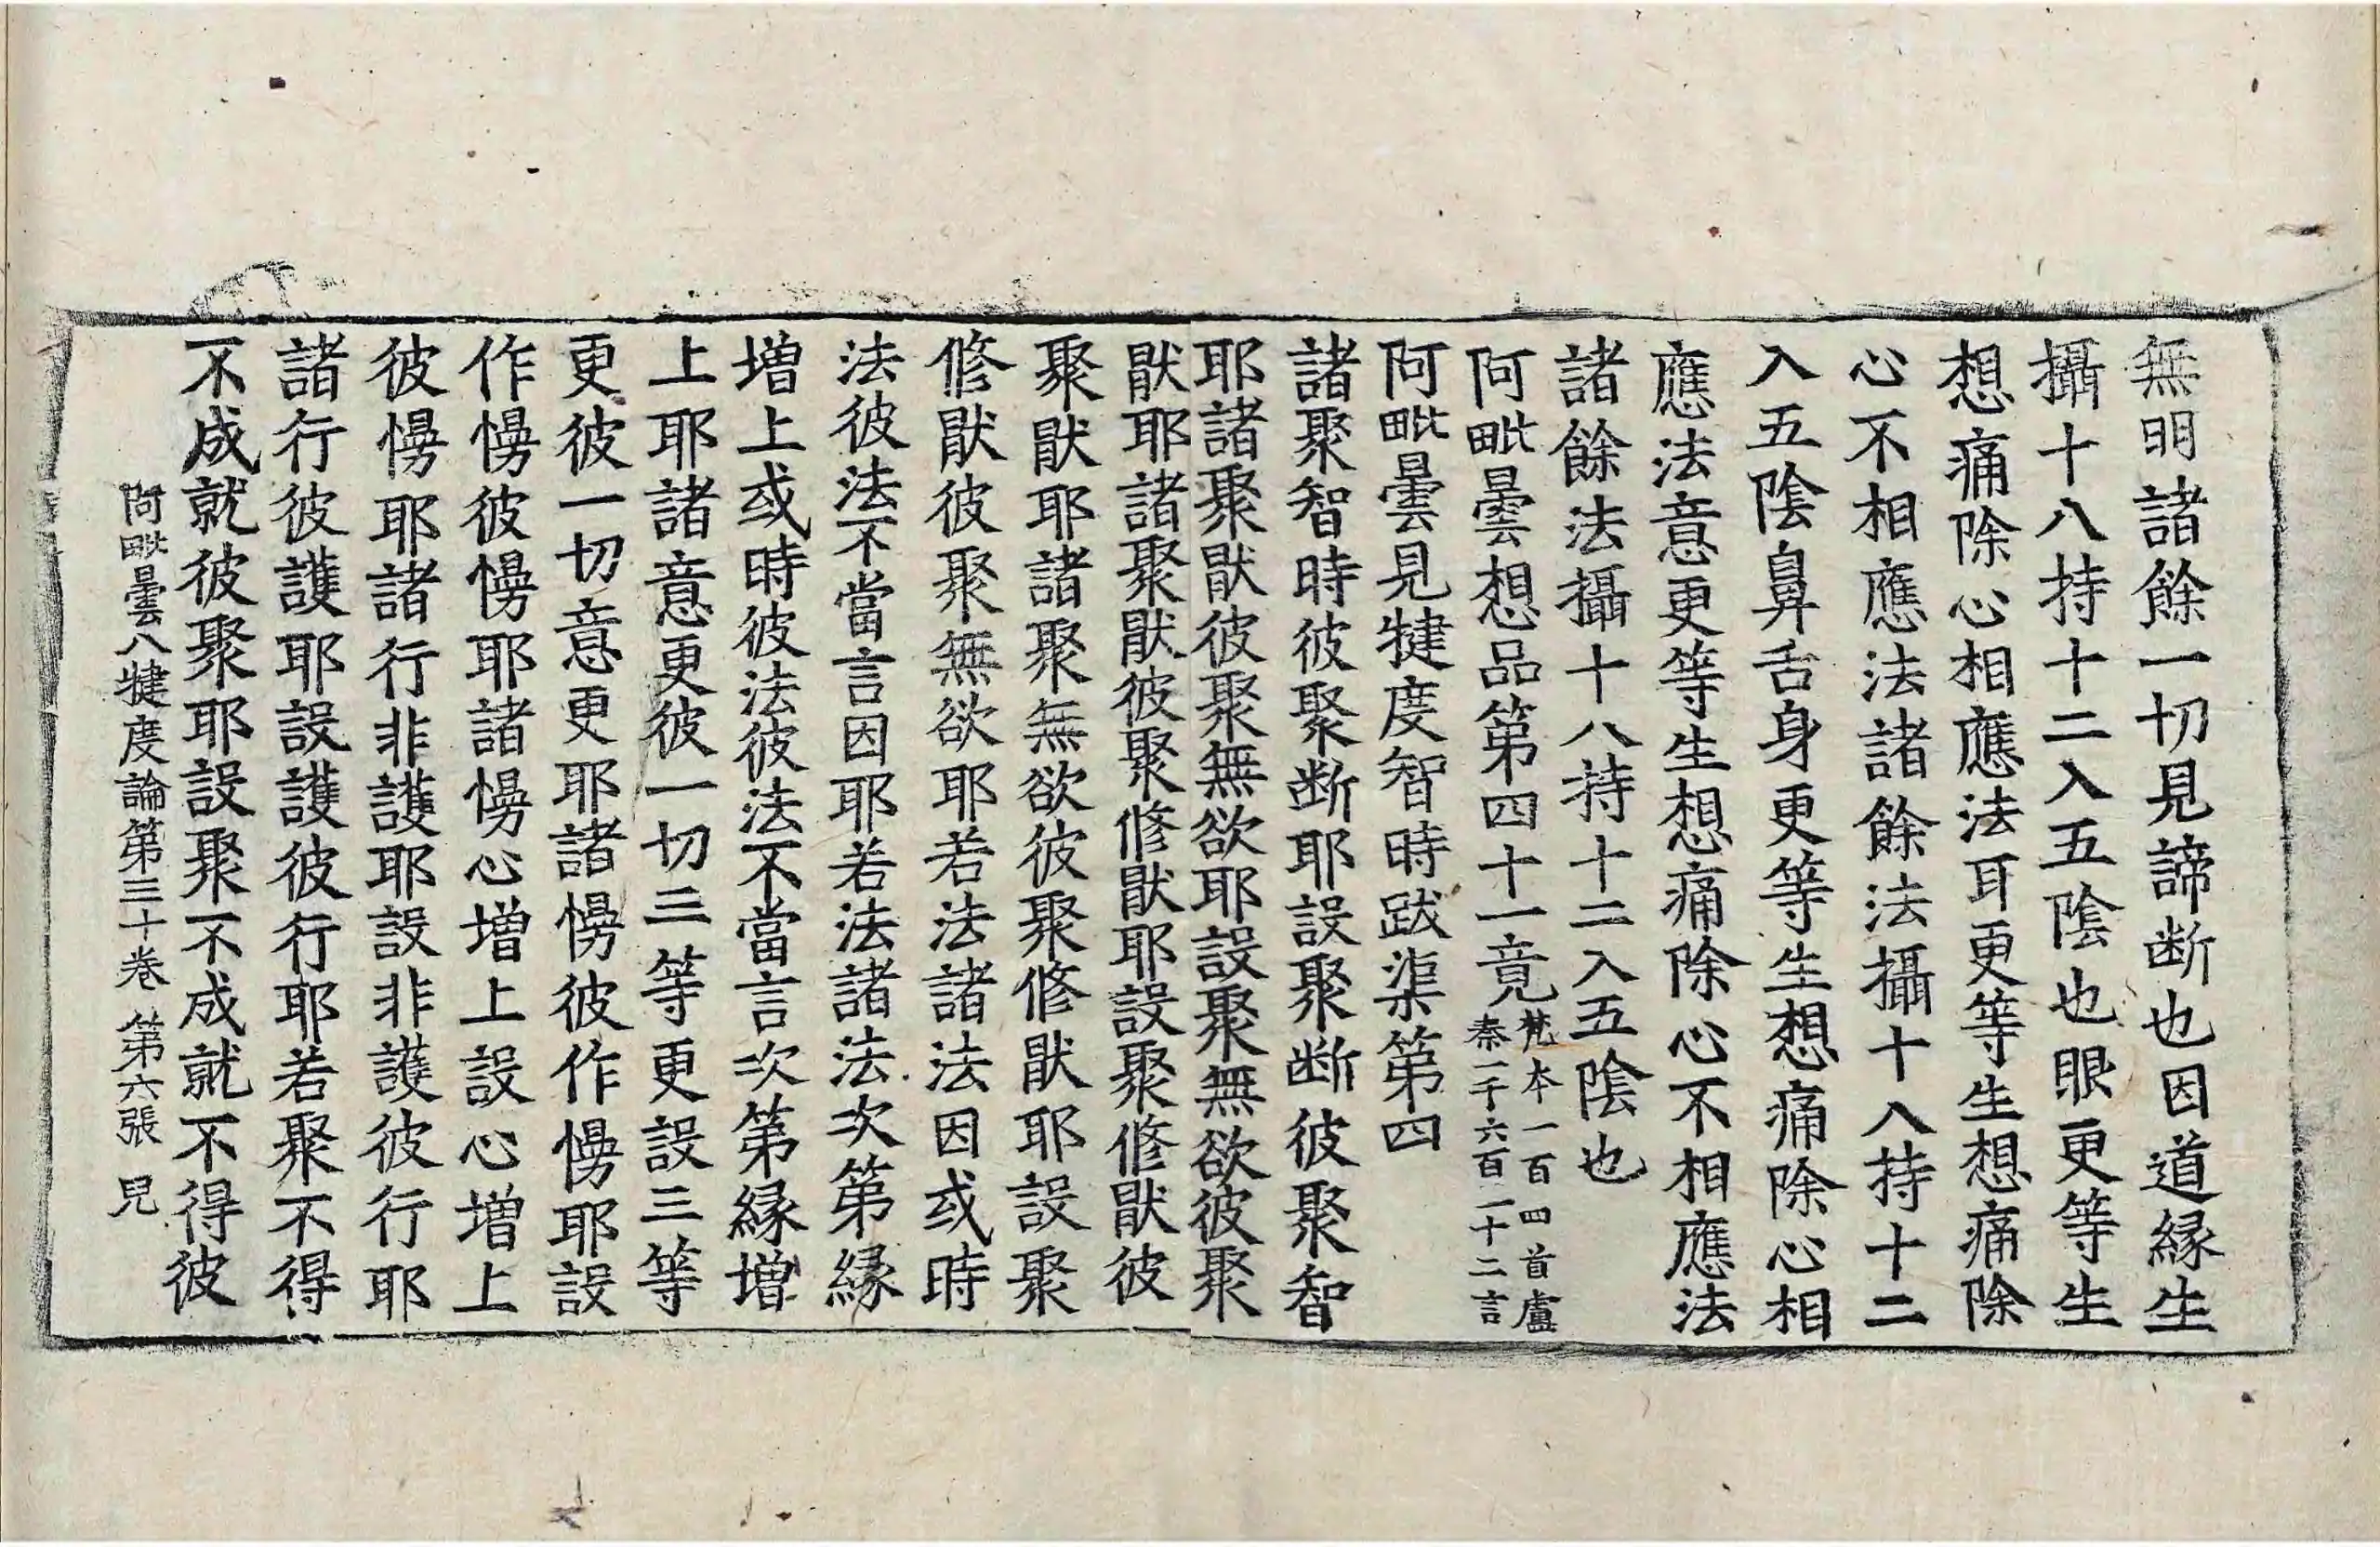 無明諸餘一切見諦断也因道縁生
攝十八持十二入五陰也眼更等生
想痛除心相應法耳更等生想痛除
心不相應法諸餘法攝十八持十二
入五陰鼻舌身更等生想痛除心相
應法意更等生想痛除心不相應法
諸餘法攝十八持十二入五陰也
阿毗曇想品第四十一竟梵本一百四首盧
秦一千六百二十二言
阿毗曇見犍度智時跋渠第四
諸聚智時彼聚断耶設聚断彼聚智
耶諸聚猒彼聚無欲耶設聚無欲彼聚
猒耶諸聚猒彼聚修猒耶設聚修猒彼
聚猒耶諸聚無欲彼聚修猒耶設聚
修猒彼聚無欲耶若法諸法因或時
法彼法不當言因耶若法諸法次第縁
増上或時彼法彼法不當言次第縁増
上耶諸意更彼一切三等更設三等
更彼一切意更耶諸憍彼作憍耶設
作憍彼憍耶諸憍心増上設心増上
彼憍耶諸行非護耶設非護彼行耶
諸行彼護耶設護彼行耶若聚不得
不成就彼聚耶設聚不成就不得彼
阿毗曇八犍度論第三十卷 第六張 皃